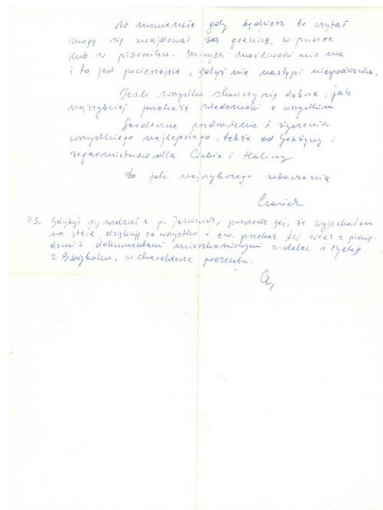 W momencie gdy będziesz to czytał
mogę się znajdować za granicą, w puszce
lub w piśmie. Innych możliwości nie ma
i to jest pocieszające, gdyż nie nastąpi niespodzianka.
Jeśli wszystko skończy się dobrze, jak
najszybciej prześlę wiadomość o wszystkim
Serdeczne pozdrowienia i życzenia
wszystkiego najlepszego, także od Grażyny i
dla Ciebie i Haliny
Do jak najszybszego zobaczenia
Czesiek
P.S. Gdybyś się widział z p. powiedz jej, że wyjechałem
na stałe, dziękuję za wszystko i ew. przekaż jej wraz z
dokumentami mieszkaniowymi
z w charakterze prezentu.
Cz,